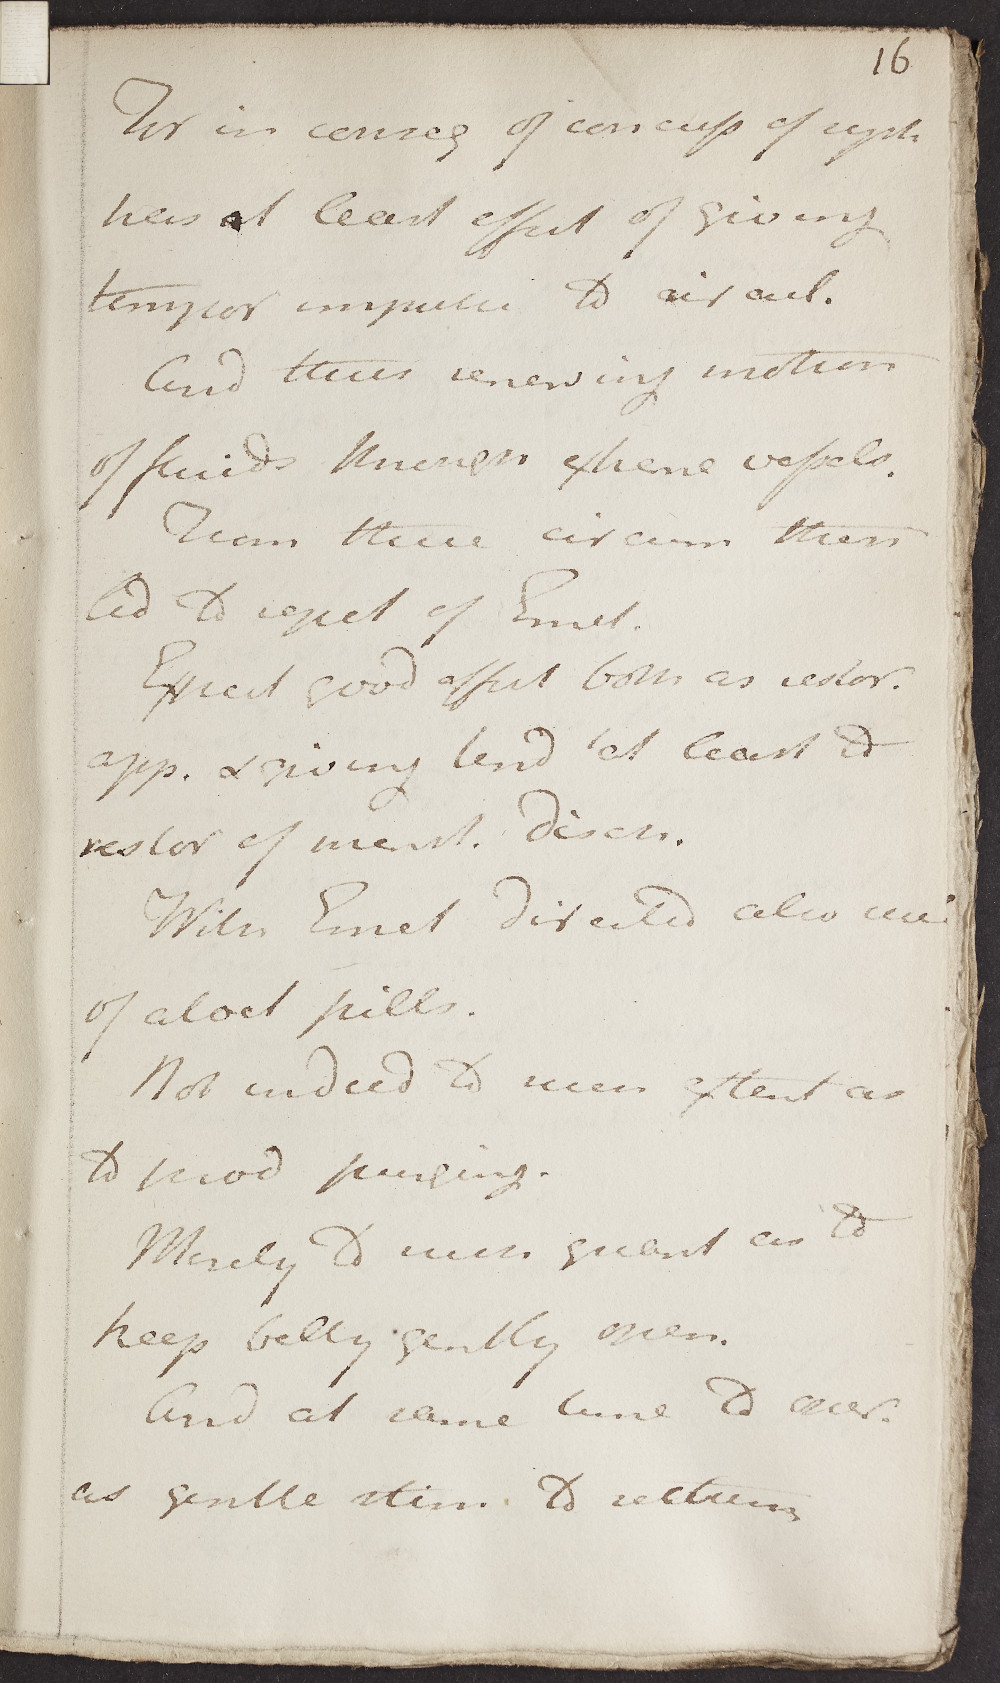 16
For in conseq of concuss of syst
has at least effect of giving
tempor impulse to circul.
And thus renewing motion
of fluids through extreme vessels.
From these circum then
led to repet of Emet.
Expect good effect both as restor.
app. & giving tend at least to
restor of menst. disch.
With Emet directed also use
of aloet pills.
Not indeed to such extent as
to prod purging.
Merely to such quant as to
keep belly gently open.
And at same time to oper.
as gentle stim to rectum